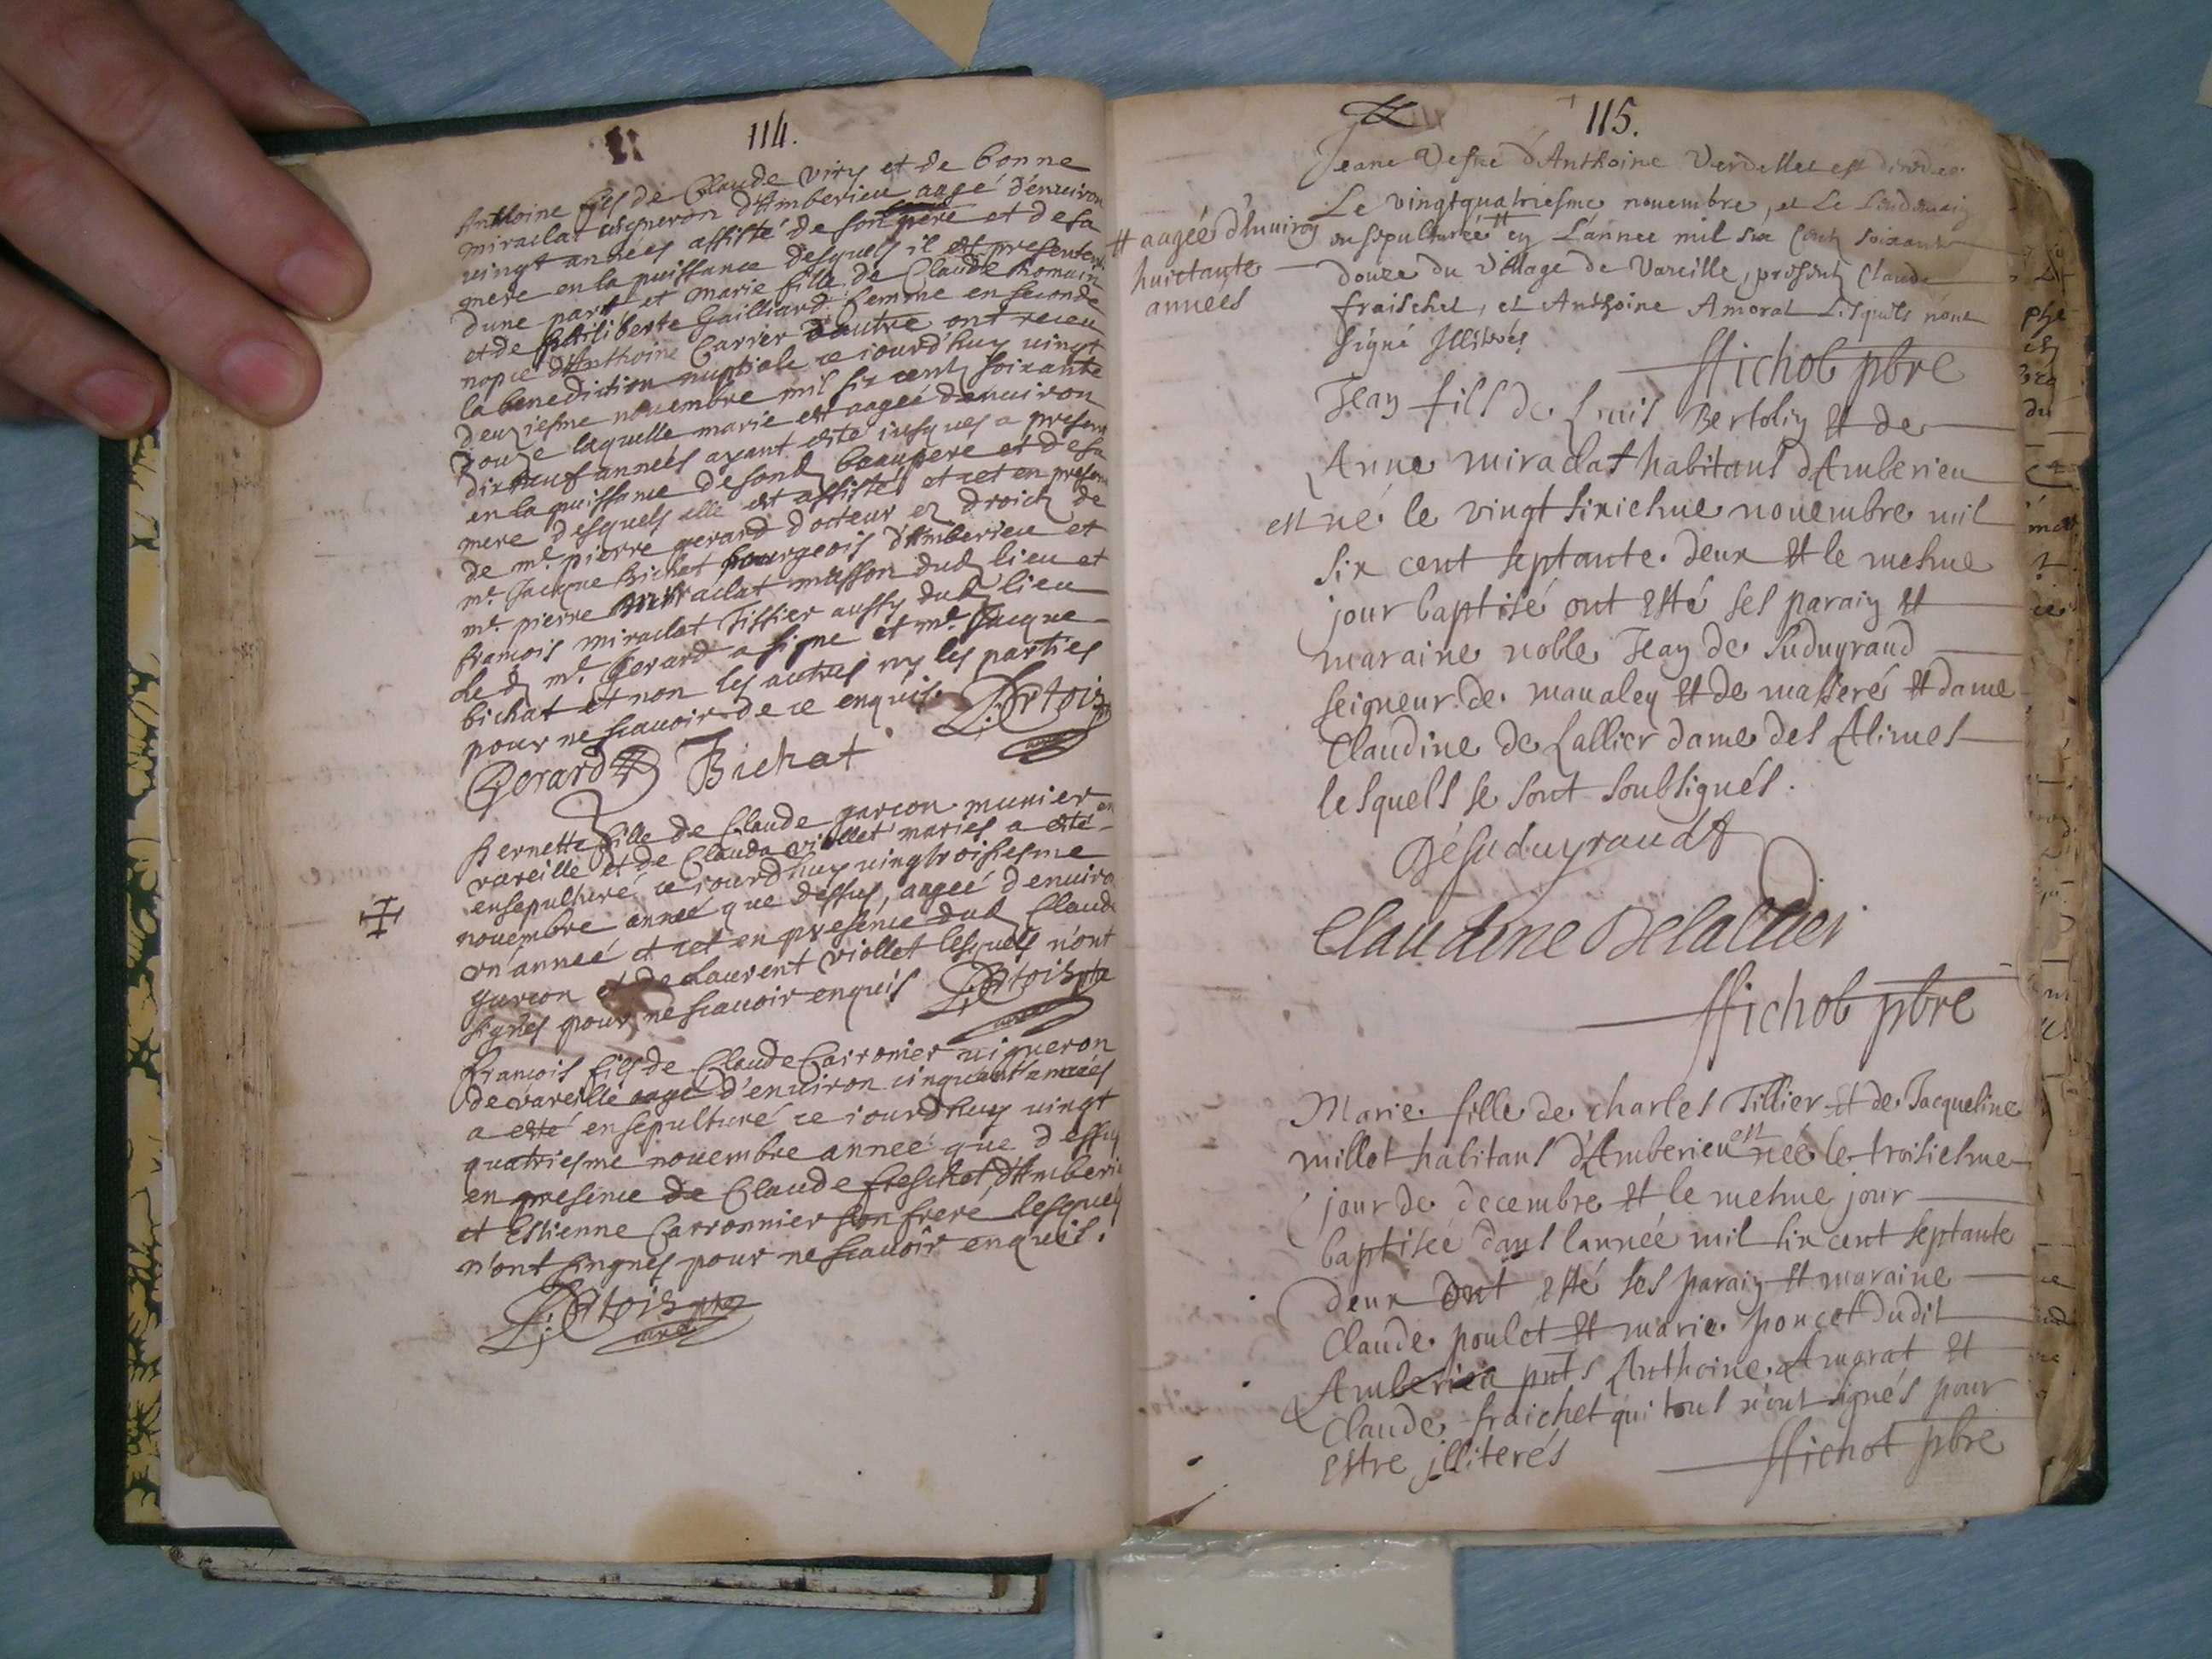 114.
Anthoine fils de Claude viry et de bonne
miraclat vigneron d'Amberieu aagé d'enuiron
vingt années assisté de son pere et de sa
mere en la puissance desquels il est present
dune part et marie fille de Claude Romain
et de philiberte Gailliard femme en seconde
nopce d'Anthoine Carrier d'autre ont receu
la benediction nuptiale ce iourd'huy vingt
deuziesme nouembre mil six cent soixante
douze laquelle marie est aagée d'enuiron
dixneuf années ayant esté iusques a present
en la puissance de sond beaupere et de sa
mere desquels elle est assistée et cet en presen
de mr. pierre gerard docteur ez droictz de
mr. Jacque bichat bourgeois d'Amberieu et
mr. pierre miraclat masson dud lieu et
francois miraclat Tissier aussy dud lieu
Led mr. Gerard a signe et mr. Jacque
bichat et non les autres ny les parties
pour ne scauoir de ce enquis.
Gerard Bichat
Pernette fille de Claude garcon munier en
vareille et de Clauda viollet mariés a esté
ensepulturé ce iourd'huy vingtroisiesme
nouembre année que dessus, aageé d'enuiro
vn année et cet en presence dud Claude
garcon et de Laurent viollet lesquels n'ont
signés pour ne scauoir enquis
francois fils de Claude Carronier vigneron
de vareille aagé d'enuiron cinquant années
a esté ensepulturé ce iourdhuy vingt
quatriesme nouembre année que dessus
en presence de Claude freschet d'Amberie
et Estienne Carronnier son frere lesquels
n'ont singnes pour ne scauoir enquis.
115.
Jeane Vefue d'Anthoine Verdellet est décédée
Le vingtquatriesme nouembre, et Le Lendemain
ensepulturée # en L'annee mil six Cent soixante
# aagée d'enuiron
huictante
années
douze du village de Vareille, presents Claude
fraischet, et Anthoine Amorat Lesquels nont
signé Illiterés
ffichot pbre
Jean fils de Louis Bertolin et de
Anne miraclat habitans d'Amberieu
est né le vingt sixiesme nouembre mil
six cent septante deux et le mesme
jour baptisé ont esté ses parain et
maraine noble Jean de Suduyraud
seigneur de maualen et de masseré et dame
Claudine de Lallier dame des Alimes
lesquels se sont soubsignés.
Désuduyraudt
Claudine Delallier
ffichot pbre
Marie fille de charles Tillier et de Jacqueline
millot habitans d'Amberieu est neé le troisiesme
jour de decembre et le mesme jour
baptisée dans lannée mil six cent septante
deux ont esté ses parain et maraine
Claude poulet et marie poncet dudit
Amberieu pnts Anthoine Amorat et
Claude fraichet qui tous n'ont signés pour
estre jlliterés
ffichot pbre